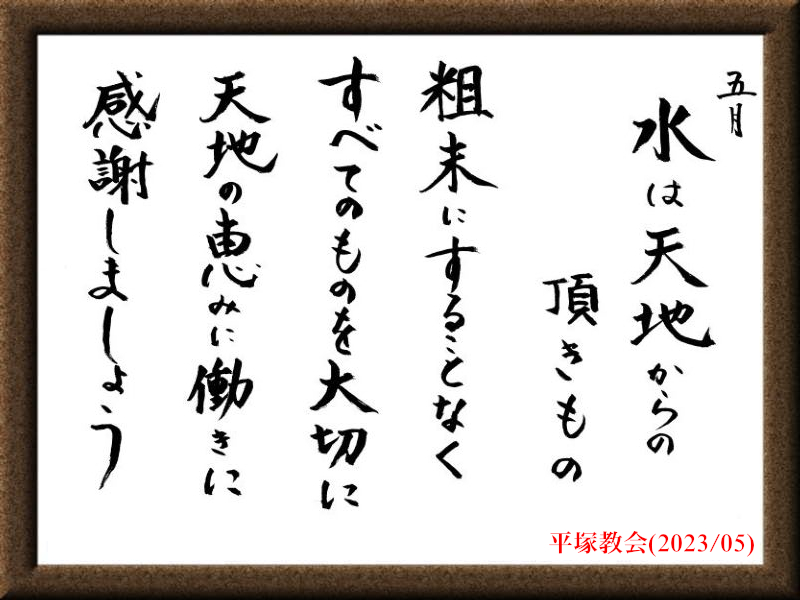 五月
水は天地からの
頂きもの
粗末にすることなく
すべてのものを大切に
天地の恵みに働きに
感謝しましょう
平塚教会(2023/05)